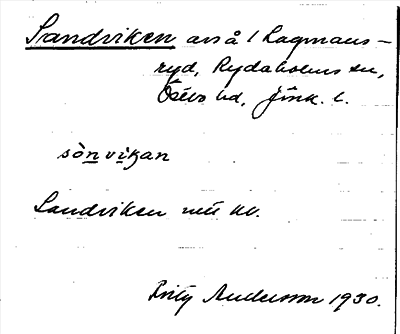 Sandviken avs å 1 Lagmans-
ryd, Rydaholms sn,
Östbo hd, Jönk. l.
sònvikan
Sandviken
Fritz Anderson 1930.